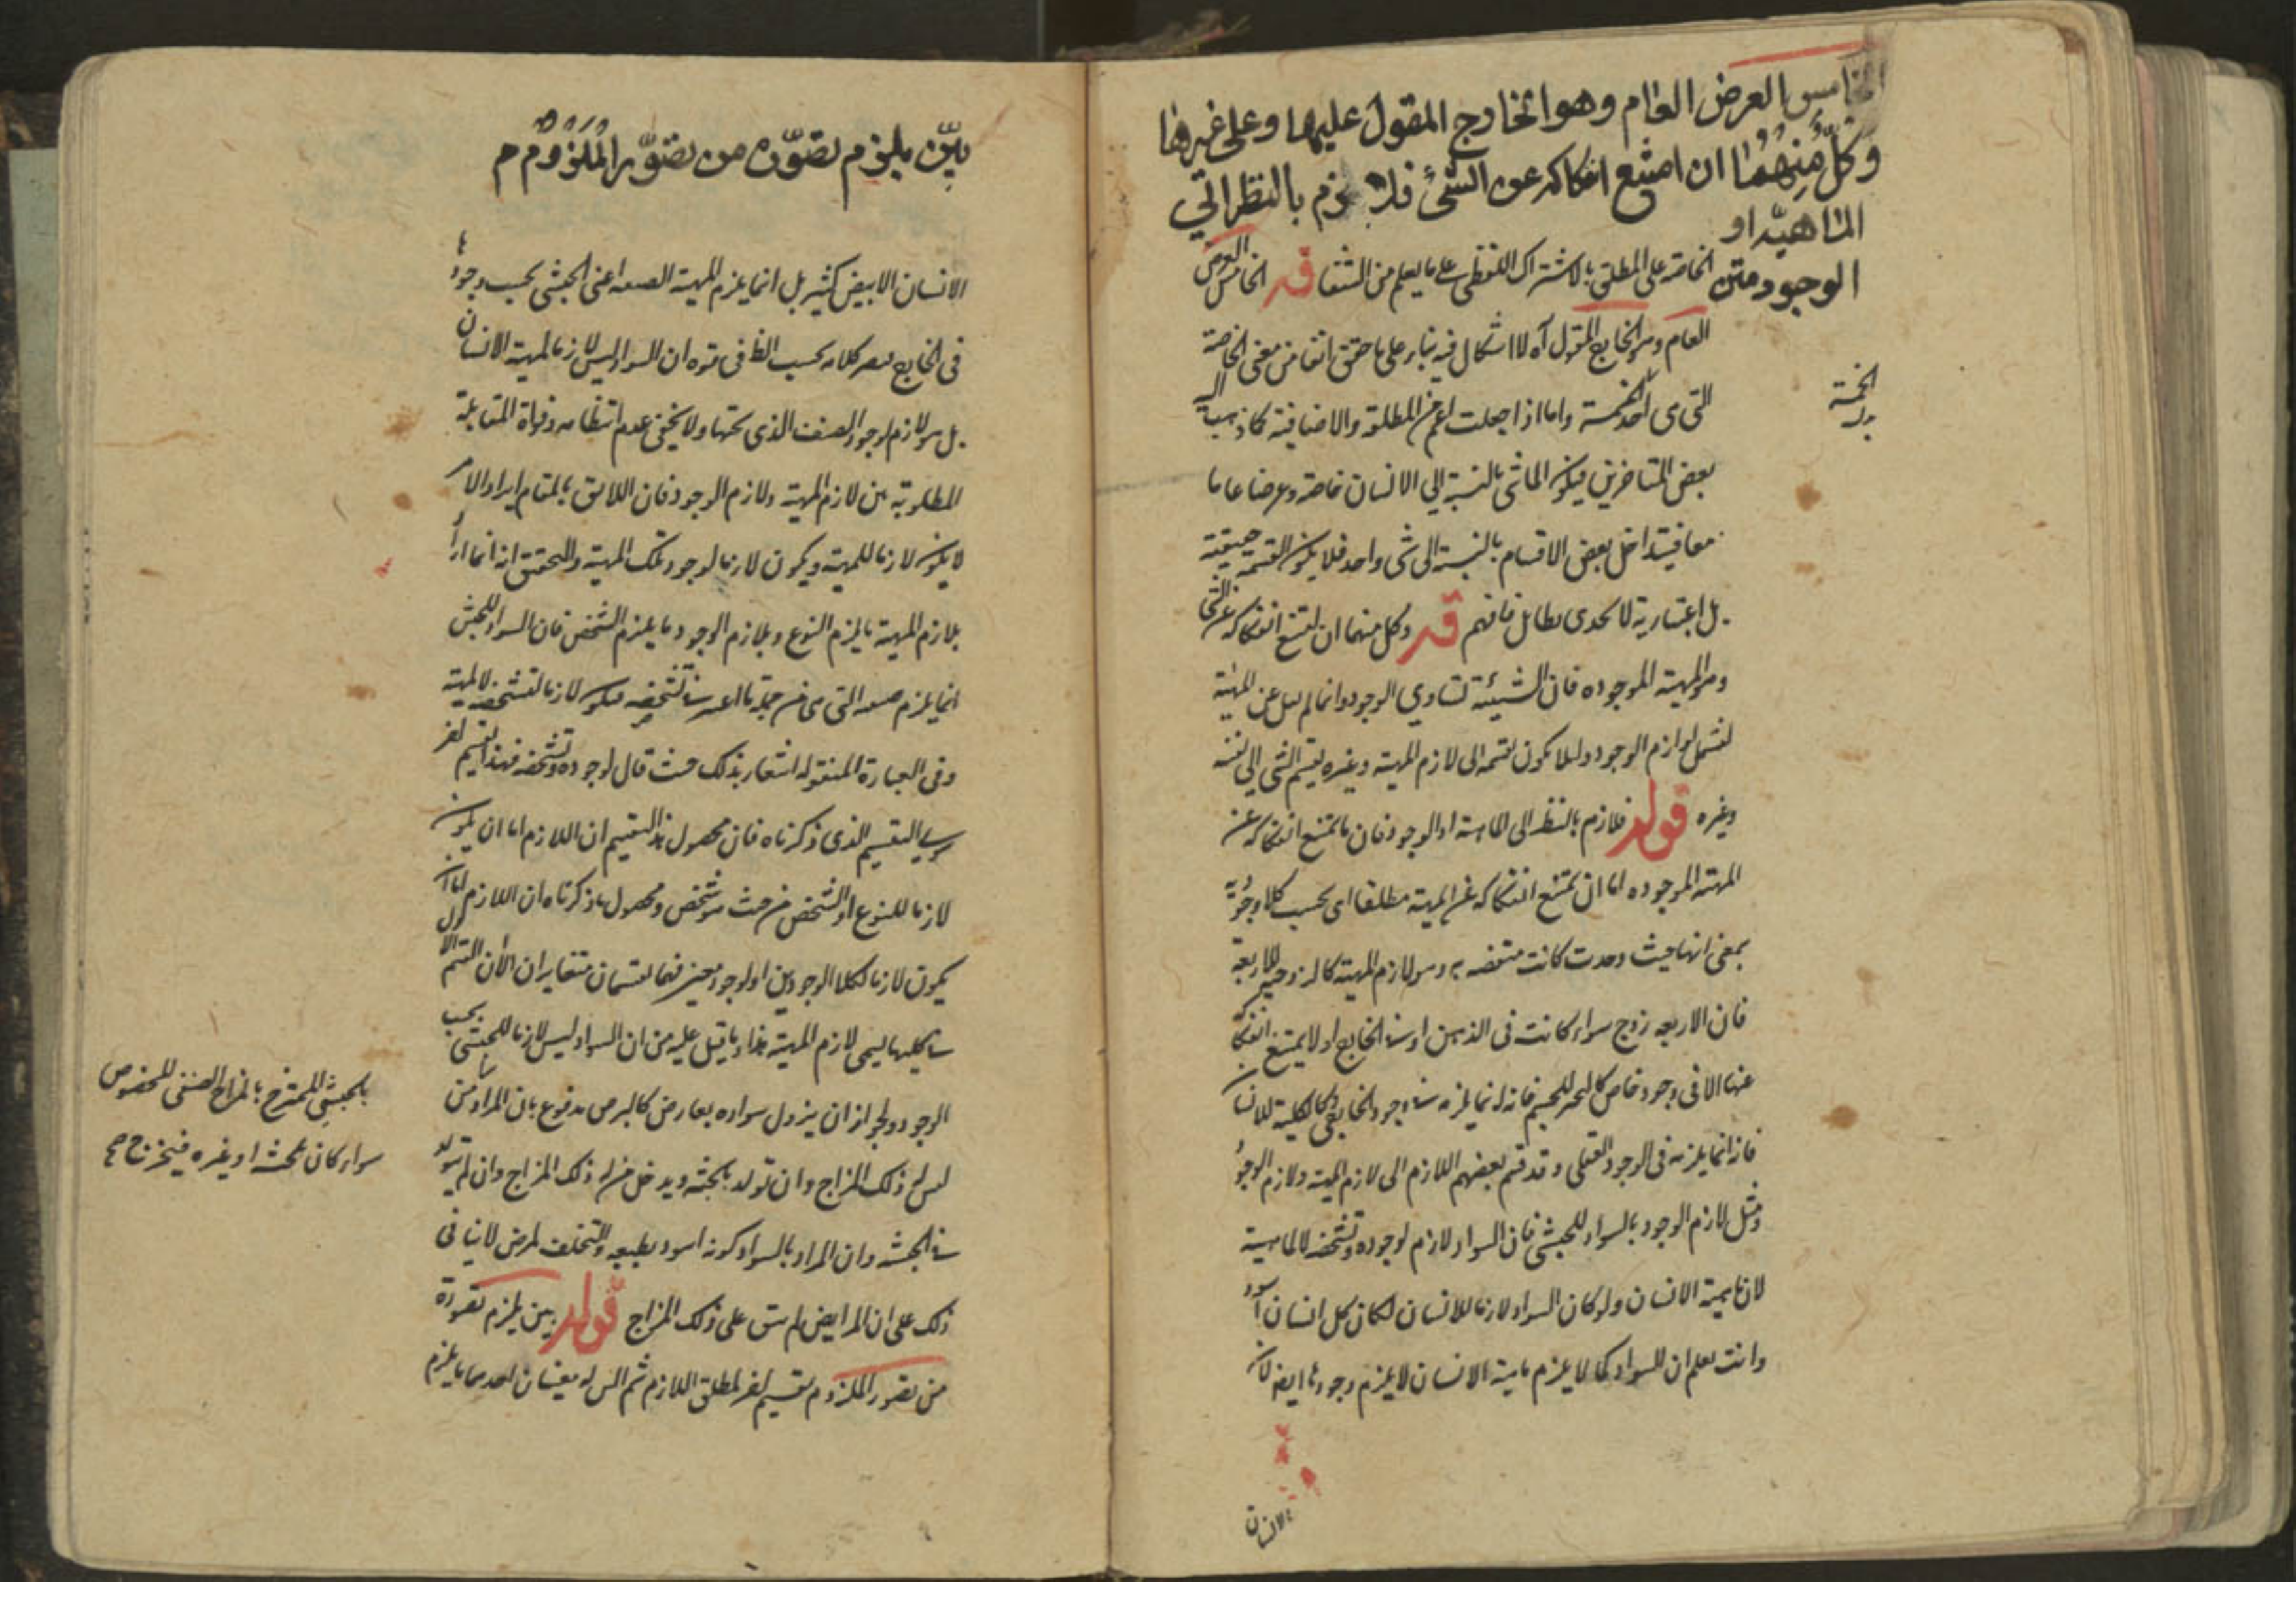 الخامس العرض العام وهو الخارج المقول عليها وعلى غيرها
وكل منهما ان امتنع انفكاكه عن الشئ فلازم بالنظر الى
الماهية او
الوجود متن
الخاصة على المطلق بالاشتراك اللفظى على ما يعلم من الشفا قر الخامس العرض
العام وهو الخارج المقول آه لا اشكال فيه بناء على ما حقق انفا من معنى الخاصة
التى هى احد الخمسة واما اذا جعلت اعم من المطلقة والاضافية كما ذهب اليه
بعض المتاخرين فيكون الماشى بالنسبة الى الانسان خاصة وعرضا عاما
معا فيتداخل بعض الاقسام بالنسبة الى شى واحد فلا يكون القسمة حقيقية
بل اعتبارية لا يجدى بطائل فافهم قر وكل منهما ان امتنع انفكاكه عن الشى
وهو المهية الموجوده فان الشيئية تساوى الوجود وانما لم يقل عن المهية
ليشمل لوازم الوجود ولئلا يكون تقسيمه الى لازم المهية وغيره تقسيم الشى الى نفسه
وغيره قوله فلازم بالنظر الى الماهية او الوجود فان ما يمتنع انفكاكه عن
المهية الموجوده اما ان يمتنع انفكاكه عن المهية مطلقا اى بحسب كلا وجوديه
بمعنى انها حيث وجدت كانت متصفه به وهو لازم المهية كالزوجية للاربعة
فان الاربعه زوج سواء كانت فى الذهن او فى الخارج او لا يمتنع انفكاكه
عنها الا فى وجود خاص كالتحيز للجسم فانه انما يلزمه فى وجود الخارجى وكالكلية للانسان
فانه انما يلزمه فى الوجود العقلى وقد قسم بعضهم اللازم الى لازم المهية ولازم الوجود
ومثل لازم الوجود بالسواد للحبشى فان السواد لازم لوجوده وتشخصه لا لماهيته
لان ماهيته الانسان ولو كان السواد لازما للانسان لكان كل انسان اسود
وانت تعلم ان السواد كما لا يلزم ماهية الانسان لا يلزم وجودها ايضا لان
الانسان
الخمسة
بدل
بيّن يلزم تصوّره من تصوّر الملزوم م
الانسان الابيض كثير بل انما يلزم المهية الصنفية اعنى الحبشى بحسب وجودها
فى الخارج فيصير كلامه بحسب الظ فى قوه ان السواد ليس لازما لمهية الانسان
بل هو لازم لوجود الصنف الذى تحتها ولا يخفى عدم انتظامه وفواة المقابلة
المطلوبة بين لازم المهية ولازم الوجود فان اللائق بالمقام ايراد الامر
لا يكون لازما للمهية ويكون لازما لوجود تلك المهية والتحقيق انه انما اراد
بلازم المهية ما يلزم النوع وبلازم الوجود ما يلزم الشخص فان السواد للحبشى
انما يلزم صنفه التى هى من جملة ما اعتبر فى تشخصه فيكون لازما لتشخصه لا لمهيته
وفى العبارة المنقوله اشعار بذلك حيث قال لوجوده وتشخصه فهذا تقسيم اخر
سوى التقسيم الذى ذكرناه فان محصول هذا التقسيم ان اللازم اما ان يكون
لازما للنوع او الشخص من حيث هو شخص ومحصول ما ذكرناه ان اللازم اما ان
يكون لازما لكلا الوجودين او لوجود معين فهما تقسيمان متغايران الا ان القسم الاول
فى كليهما يسمى لازم المهية هذا وما قيل عليه من ان السواد ليس لازما للحبشى بحسب
الوجود ولجواز ان يزول سواده بعارض كالبرص مدفوع بان المراد من
ليس له ذلك المزاج وان تولد بالحبشة ويدخل من له ذلك المزاج وان لم يتولد
فى الحبشه وان المراد بالسواد كونه اسود بطبعه والتخلف لمرض لا ينافى
ذلك على ان المرايض لم يبق على ذلك المزاج قوله بين يلزم تصوره
من تصور الملزوم تقسيم اخر لمطلق اللازم ثم البين له معنيان احدهما ما يلزم
بالحبشى الممتزج بالمزاج الصنفى المخصوص
سواء كان بحبشه او غيره فيخرج صح